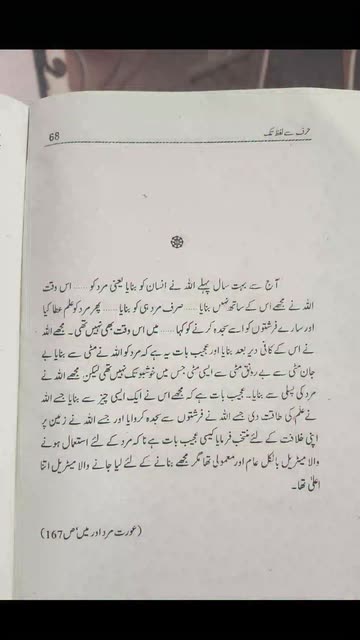 حرف سے لفظ تک
68
آج سے بہت سال پہلے اللہ نے انسان کو بنایا یعنی مرد کو ...... اس وقت
اللہ نے مجھے اس کے ساتھ نہیں بنایا ...... صرف مرد ہی کو بنایا ...... پھر مرد کو علم عطا کیا
اور سارے فرشتوں کو اسے سجدہ کرنے کو کہا ...... میں اس وقت بھی نہیں تھی۔ مجھے اللہ
نے اس کے کافی دیر بعد بنایا اور عجیب بات یہ ہے کہ مرد کو اللہ نے مٹی سے بنایا بے
جان مٹی سے بے رونق مٹی سے ایسی مٹی جس میں خوشبو تک نہیں تھی لیکن مجھے اللہ نے
مرد کی پسلی سے بنایا۔ عجیب بات ہے کہ مجھے اس نے ایک ایسی چیز سے بنایا جسے اللہ
نے علم کی طاقت دی جسے اللہ نے فرشتوں سے سجدہ کروایا اور جسے اللہ نے زمین پر
اپنی خلافت کے لئے منتخب فرمایا کیسی عجیب بات ہے نا کہ مرد کے لئے استعمال ہونے
والا میٹریل بالکل عام اور معمولی تھا مگر مجھے بنانے کے لئے لیا جانے والا میٹریل اتنا
اعلیٰ تھا۔
(عورت مرد اور میں، ص 167)